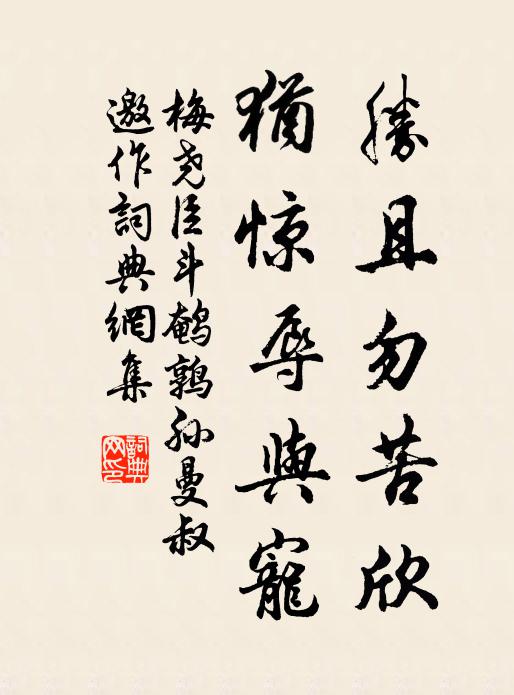 勝且勿苦欣
猶惊辱與寵
梅尧臣斗鹌鹑孙曼叔
邀作詞典網集
詞典
网印